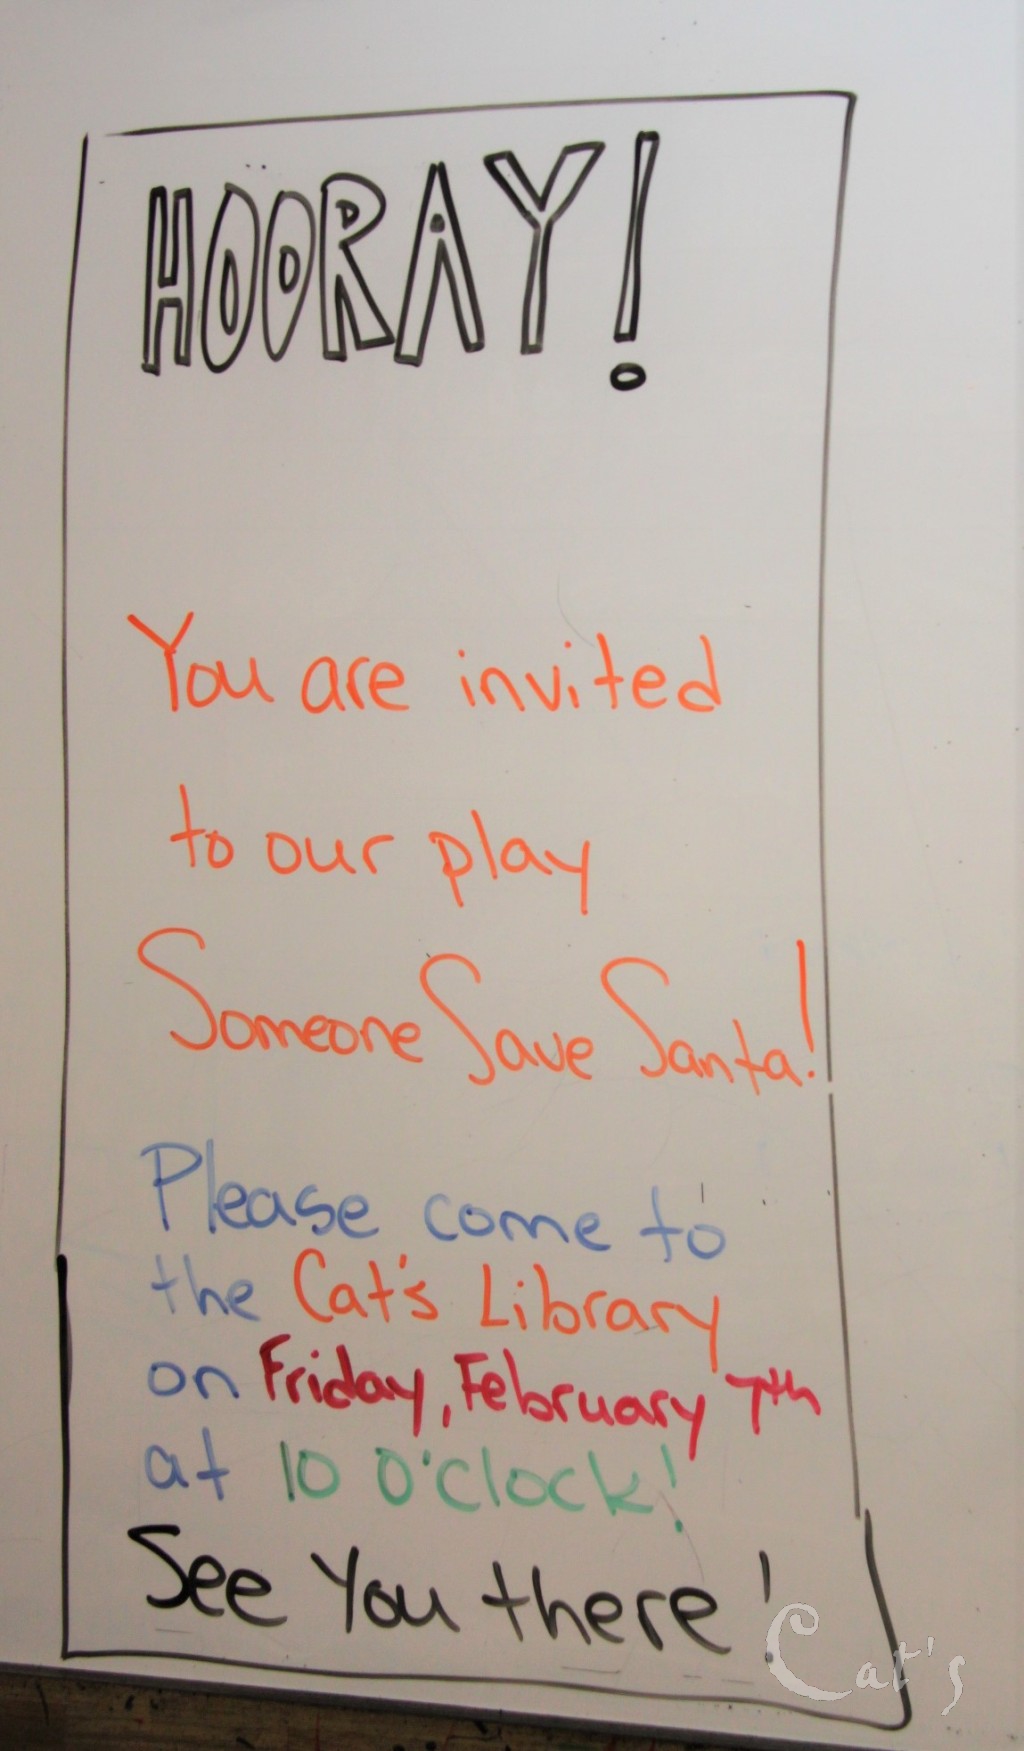 HOORAY!
You are invited
to our play
Someone Save Santa!
Please come to
the Cat's Library
on Friday, February 7th
at 10 O'clock!
See You there!
Cat's